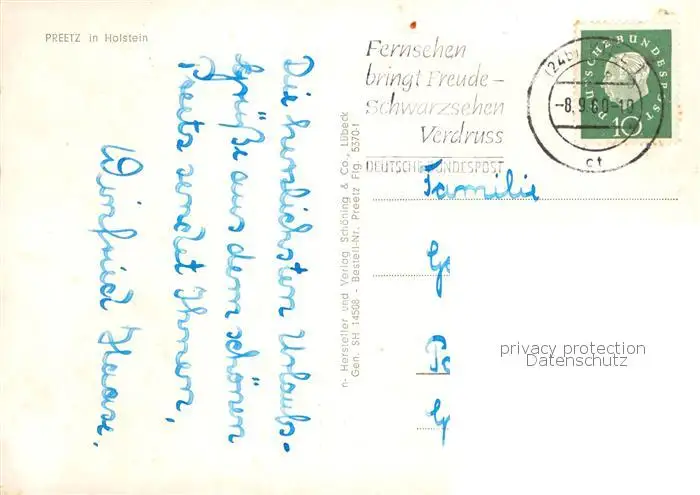 PREETZ in Holstein
Die herzlichsten Urlaubs-
grüße aus dem schönen
Preetz sendet Ihnen,
Winfried Haase.
n- Hersteller und Verlag Schöning & Co., Lübeck
Gen. SH 14508 - Bestell-Nr. Preetz Flg. 5370-1
Fernsehen
bringt Freude-
Schwarzsehen
Verdruss
DEUTSCHE BUNDESPOST
(24b)
-8.9.60-19
DEUTSCHE BUNDESPOST
10
Familie
privacy protection
Datenschutz